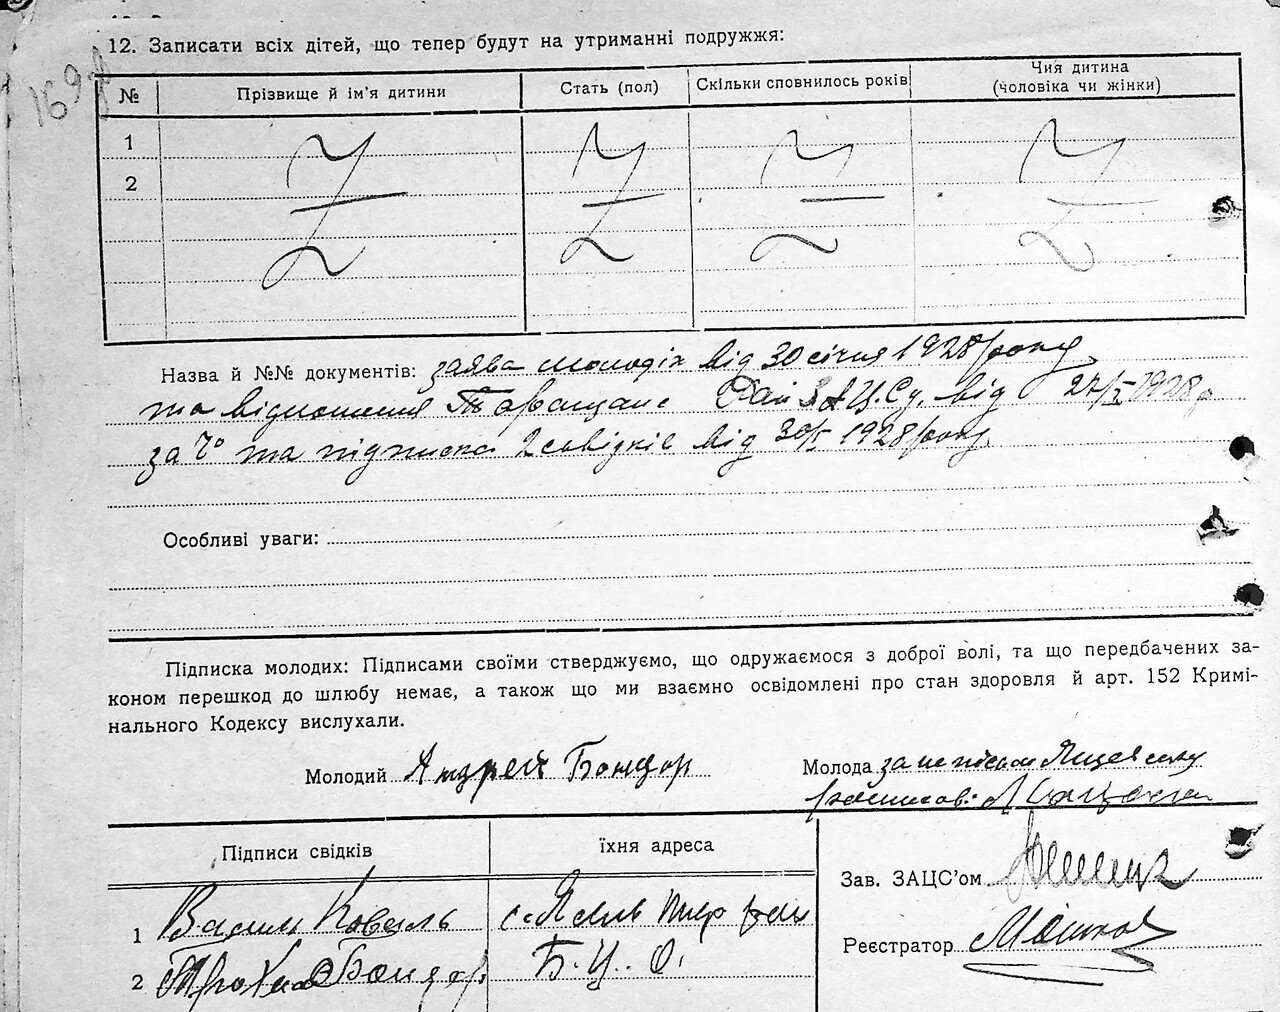 169
12. Записати всіх дітей, що тепер будут на утриманні подружжя:
№ Прізвище й ім'я дитини Стать (пол) Скільки сповнилось років Чия дитина (чоловіка чи жінки)
1
2
Назва й №№ документів: заява молодіх від 30 січня 1928 року
та відношення Таращан. Рай ЗАЦСу. від 27/I 1928 р
за ч° та підписка 2 свідків від 30/I 1928 року
Особливі уваги:
Підписка молодих: Підписами своїми стверджуємо, що одружаємося з доброї волі, та що передбачених за-
коном перешкод до шлюбу немає, а також що ми взаємно освідомлені про стан здоровля й арт. 152 Кримі-
нального Кодексу вислухали.
Молодий Андрей Бондор Молода за неписьм
Підписи свідків їхня адреса
Зав. ЗАЦС'ом
1 Василь Коваль с.
Реєстратор
2 Трохим Бондар. Б. Ц. О.